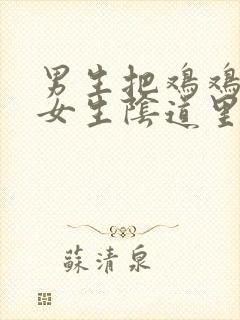 男生把鸡鸡
女生陰道里
蘇清泉